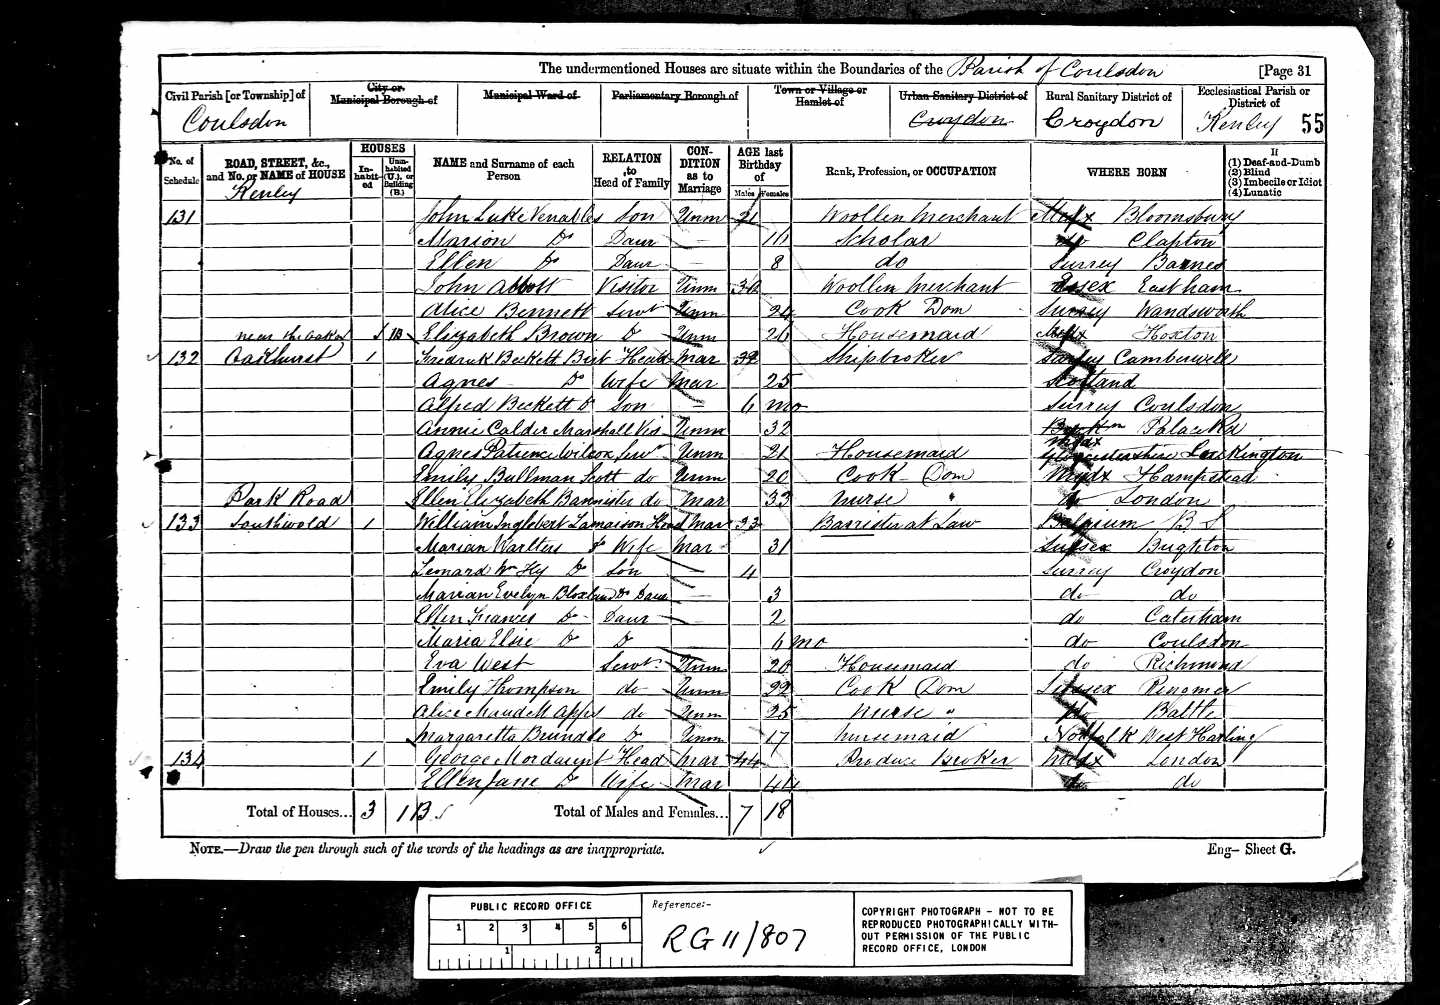 The undermentioned Houses are situate within the Boundaries of the Parish of Coulsdon [Page 31
Civil Parish [or Township] of Coulsdon
City or Municipal Borough of
Municipal Ward of
Parliamentary Borough of
Town or Village or Hamlet of
Urban Sanitary District of Croydon
Rural Sanitary District of Croydon
Ecclesiastical Parish or District of Kenley 55
No. of Schedule
ROAD, STREET, &c., and No. or NAME of HOUSE
HOUSES
Inhabited
Uninhabited (U.), or Building (B.)
NAME and Surname of each Person
RELATION to Head of Family
CONDITION as to Marriage
AGE last Birthday of
Males Females
Rank, Profession, or OCCUPATION
WHERE BORN
If
(1) Deaf-and-Dumb
(2) Blind
(3) Imbecile or Idiot
(4) Lunatic
Kenley
131 John Luke Venables Son Unm 21 Woollen Merchant Middx Bloomsbury
Marion Do Daur — 14 Scholar do Clapton
Ellen Do Daur — 8 do Surrey Barnes
John Abbott Visitor Unm 34 Woollen Merchant Essex East ham
Alice Bennett Servt Unm 24 Cook Dom Surrey Wandsworth
near the oaks 1B Elizabeth Brown D Unm 26 Housemaid Middx Hoxton
132 Oakhurst 1 Fredrick Beckett Birt Head Mar 32 Shipbroker Surrey Camberwell
Agnes Do Wife Mar 25 Scotland
Alfred Beckett Do Son — 6 mo Surrey Coulsdon
Annie Calder Marshall Vis Unm 32 Buckm Palace Rd Middx
Agnes Patience Wilcox Serv Unm 21 Housemaid Gloucestershire Luckington
Emily Bullman Scott do Unm 20 Cook Dom Middx Hampstead
Park Road Ellen Elizabeth Bannister do Mar 33 Nurse " do London
133 Southwold 1 William Inglebert Lamaison Head Mar 33 Barrister at Law Belgium B S
Marian Warlters Do Wife Mar 31 Sussex Brighton
Leonard Wm Hy Do Son 4 Surrey Croydon
Marian Evelyn Bloxland Do Daur — 3 do do
Ellen Frances Do Daur — 2 do Caterham
Maria Elsie Do D 6 mo do Coulsdon
Eva West Servt Unm 20 Housemaid do Richmond
Emily Thompson do Unm 22 Cook Dom Sussex Ringmer
Alice Maude M Apps do Unm 25 Nurse " do Battle
Margaretta Brundle D Unm 17 Nursemaid Norfolk West Harling
134 1 George Mordaunt Head Mar 44 Produce Broker Middx London
Ellen Jane Do Wife Mar 44 do do
Total of Houses... 3 1B
Total of Males and Females... 7 18
NOTE.—Draw the pen through such of the words of the headings as are inappropriate.
Eng— Sheet G.
PUBLIC RECORD OFFICE
1 2 3 4 5 6
1 2
Reference:-
RG 11/807
COPYRIGHT PHOTOGRAPH - NOT TO BE
REPRODUCED PHOTOGRAPHICALLY WITH-
OUT PERMISSION OF THE PUBLIC
RECORD OFFICE, LONDON